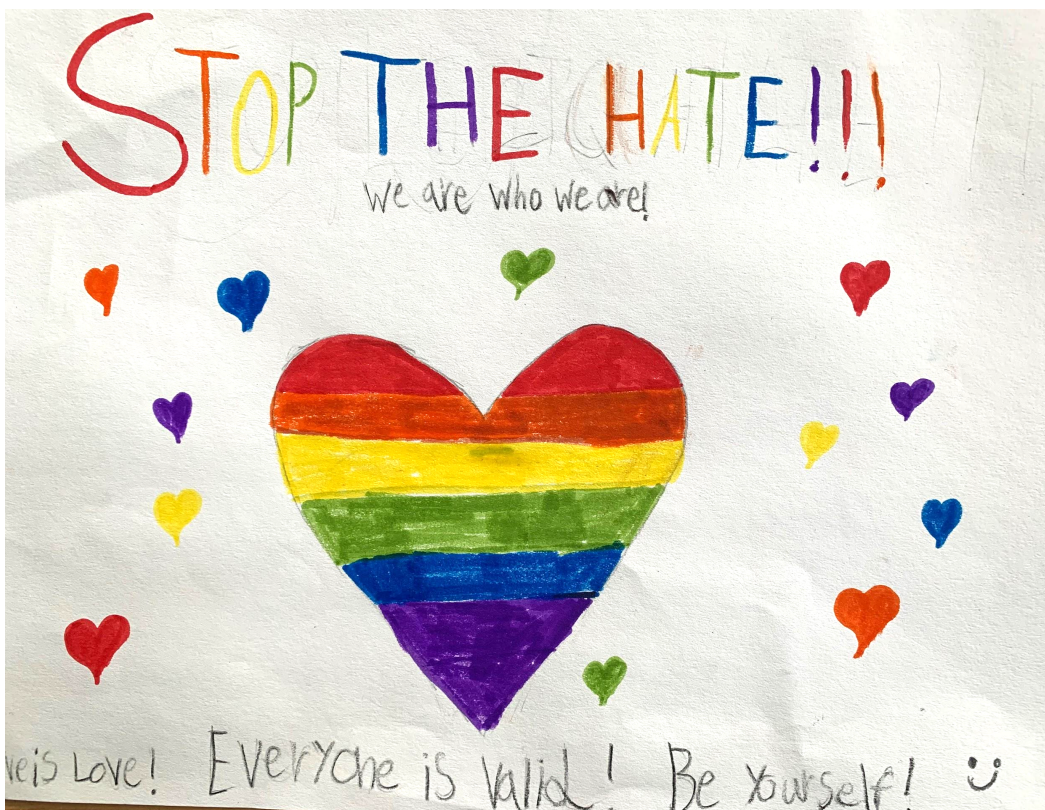 STOP THE HATE!!!
we are who we are!
ve is Love! Everyone is Valid! Be Yourself!